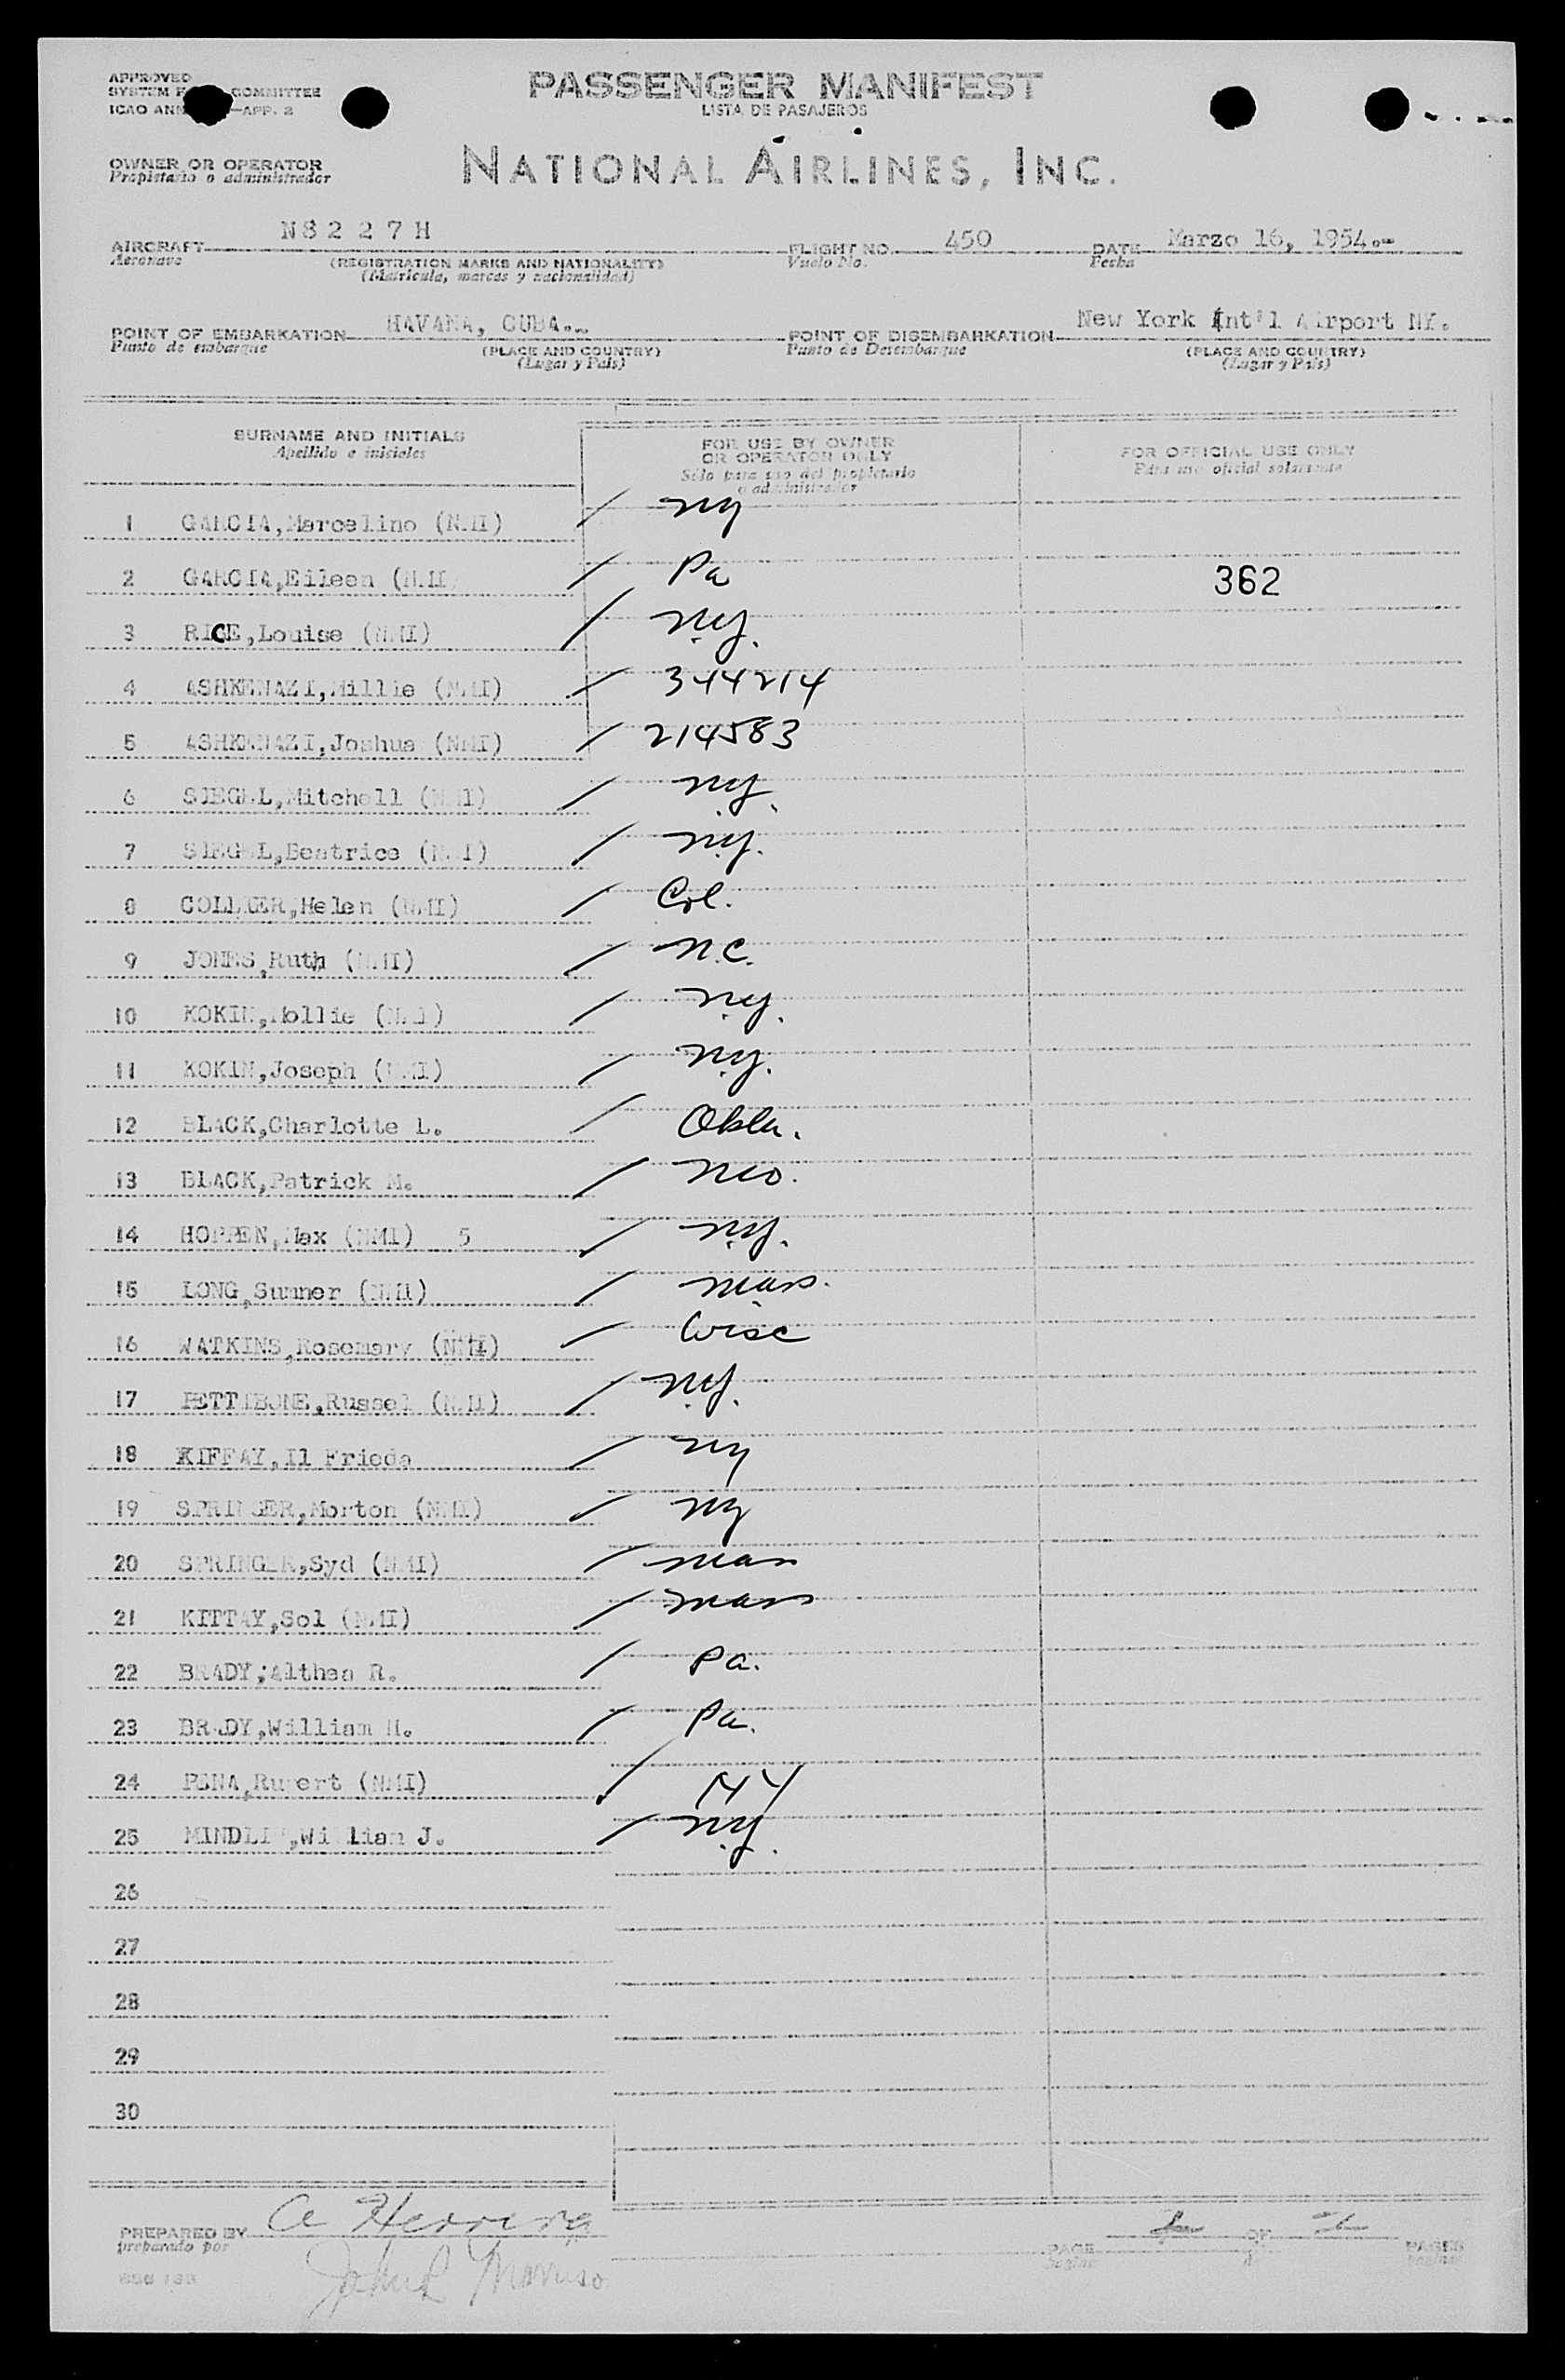 APPROVED
SYSTEM COMMITTEE
ICAO —APP. 2
PASSENGER MANIFEST
LISTA DE PASAJEROS
OWNER OR OPERATOR
Propietario o administrador
NATIONAL AIRLINES, INC.
AIRCRAFT N8227H FLIGHT NO. 450 DATE Marzo 16, 1954.-
Aeronave (REGISTRATION MARKS AND NATIONALITY) Vuelo No. Fecha
(Matricula, marcas y nacionalidad)
POINT OF EMBARKATION HAVANA, CUBA.- POINT OF DISEMBARKATION New York Int'l Airport NY.
Punto de embarque (PLACE AND COUNTRY) Punto de Desembarque (PLACE AND COUNTRY)
(Lugar y País) (Lugar y País)
SURNAME AND INITIALS FOR USE BY OWNER OR OPERATOR ONLY FOR OFFICIAL USE ONLY
Apellido e iniciales Sólo para uso del propietario o administrador Para uso oficial solamente
1 GARCIA,Marcelino (NMI) / NY
2 GARCIA,Eileen (NMI / Pa 362
3 RICE,Louise (NMI) / N.Y.
4 ASHKENAZI,Millie (NMI) / 344214
5 ASHKENAZI,Joshua (NMI) / 214583
6 SIEGEL,Mitchell (NMI) / N.Y.
7 SIEGEL,Beatrice (NMI) / N.Y.
8 COLLIER,Helen (NMI) / Col.
9 JONES,Ruth (NMI) / N.C.
10 KOKIN,Mollie (NMI) / N.Y.
11 KOKIN,Joseph (NMI) / N.Y.
12 BLACK,Charlotte L. / Okla.
13 BLACK,Patrick M. /
14 HOPPEN,Max (NMI) 5 / N.Y.
15 LONG,Sumner (NMI) / Mass.
16 WATKINS,Rosemary (NMI) / Wisc
17 PETTIBONE,Russel (NMI) / N.Y.
18 KIFFAY,Il Frieda / NY
19 SPRINGER,Morton (NMI) / NY
20 SPRINGER,Syd (NMI) / Mass
21 KITTAY,Sol (NMI) / Mass
22 BRADY,Althea R. / Pa.
23 BRADY,William H. / Pa.
24 PENA,Rupert (NMI) / NY
25 MINDLIN,William J. / N.Y.
26
27
28
29
30
PREPARED BY A Herrera PAGE OF 2 PAGES
preparado por